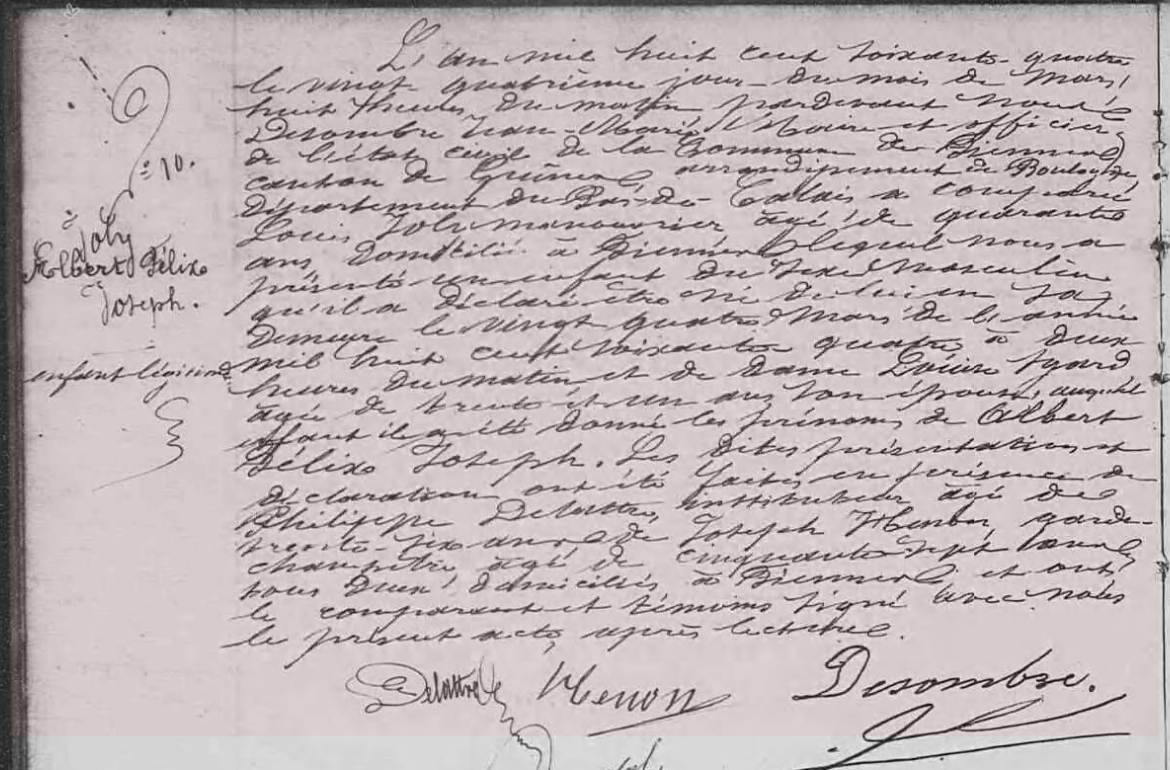 N° 10.
Joly
Albert Félix
Joseph.
enfant légitime
L'an mil huit cent soixante-quatre
le vingt quatrième jour du mois de Mars,
huit heures du matin, pardevant Nous
Desombre Jean-Marie, Maire et officier
de l'état civil de la Commune de
canton de Guînes, arrondissement de Boulogne
département du Pas-de-Calais a comparu
Louis Joly manouvrier âgé de quarante
ans domicilié à lequel nous a
présenté un enfant du sexe Masculin
qu'il a déclaré être né de lui en sa
demeure le vingt quatre Mars de l'année
mil huit cent soixante quatre à deux
heures du matin et de dame Louise
âgée de trente et un ans son épouse, auquel
enfant il a été donné les prénoms de Albert
Félix Joseph. Les dites présentation et
déclaration ont été faites en présence de
Philippe Delattre, instituteur âgé de
trente-six ans et de Joseph garde-
champêtre âgé de cinquante-sept ans
tous deux domiciliés à et ont
le comparant et témoins signé avec nous
le présent acte, après lecture.
Delattre Desombre.